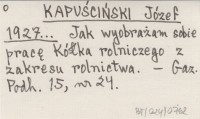 KAPUŚCIŃSKI Józef
1927... Jak wyobrażam sobie
pracę Kółka rolniczego z
zakresu rolnictwa. – Gaz.
Podh. 15, nr 24.